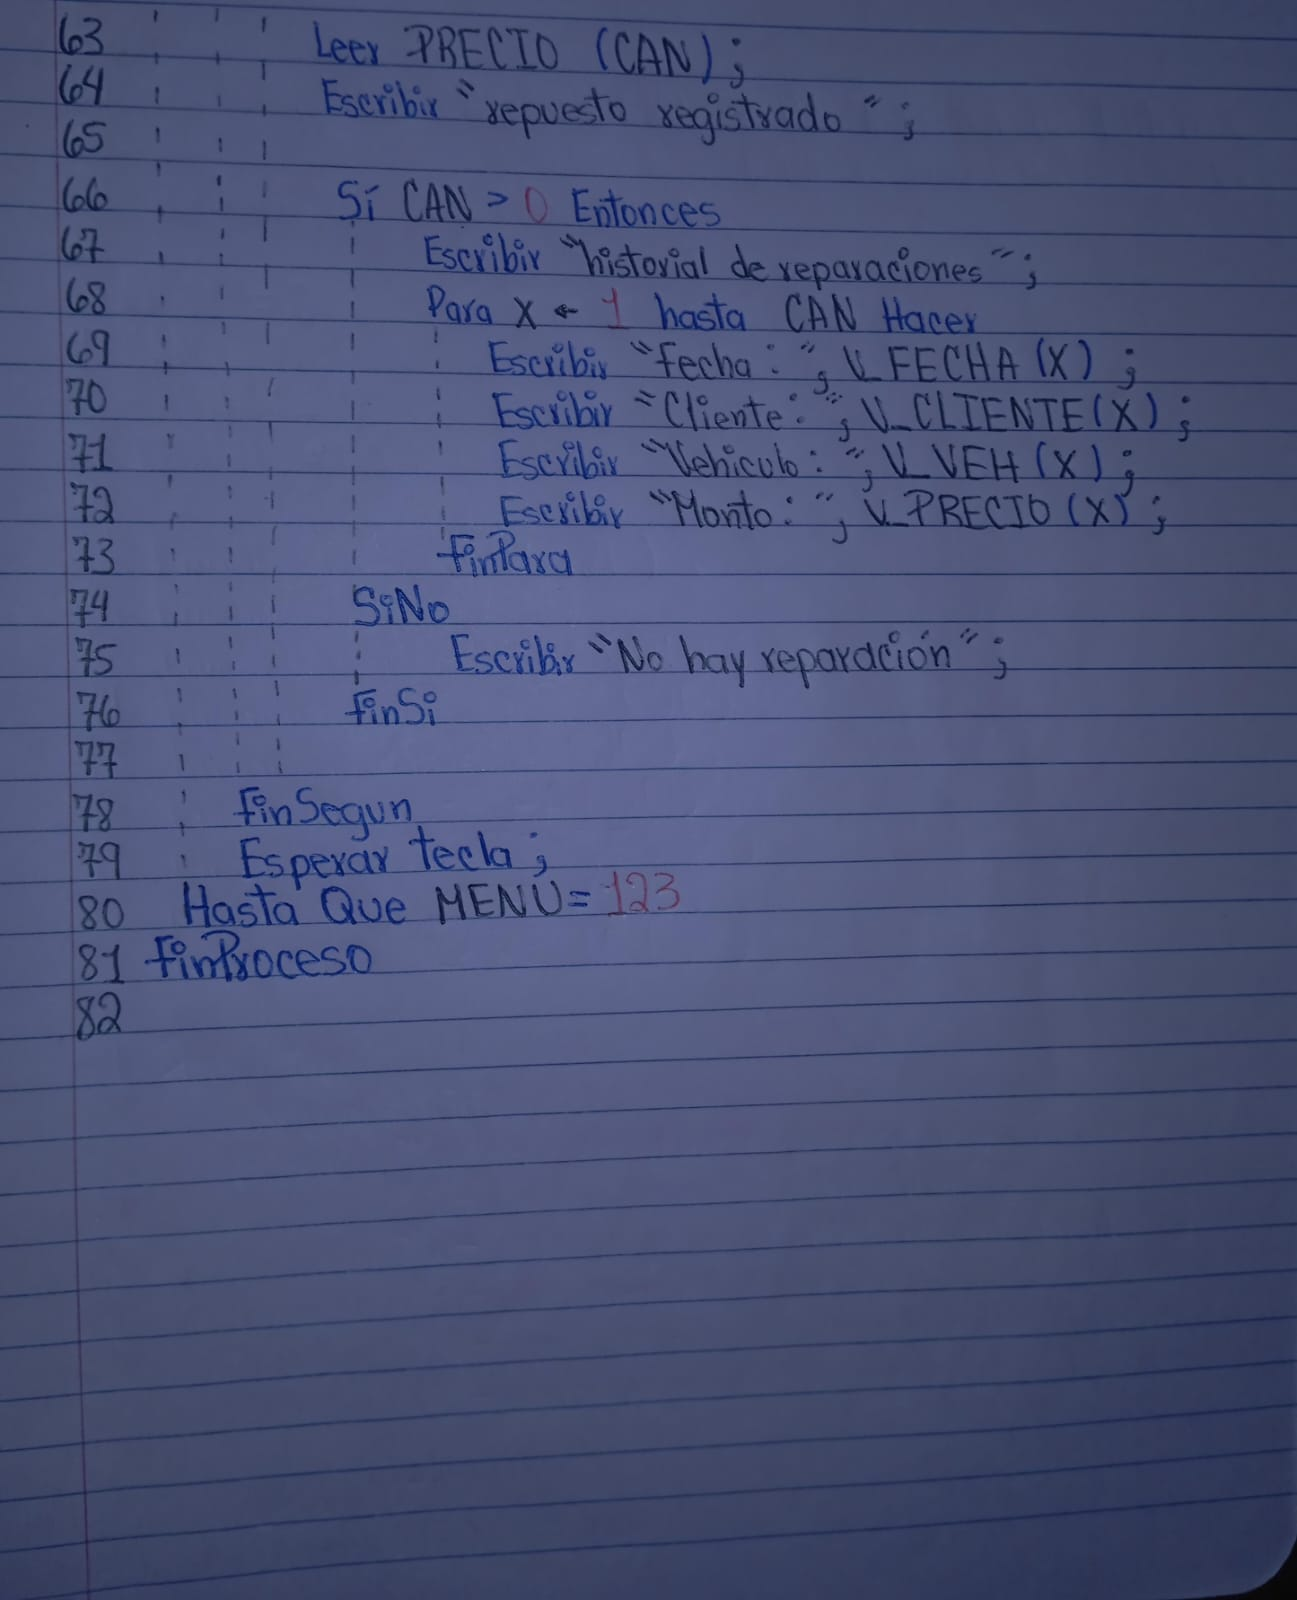 63 Leer PRECIO (CAN);
64 Escribir "repuesto registrado";
65
66 Si CAN > 0 Entonces
67 Escribir "historial de reparaciones";
68 Para X ← 1 hasta CAN Hacer
69 Escribir "Fecha: ", V_FECHA (X);
70 Escribir "Cliente: ", V_CLIENTE (X);
71 Escribir "Vehiculo: ", V_VEH (X);
72 Escribir "Monto: ", V_PRECIO (X);
73 FinPara
74 SiNo
75 Escribir "No hay reparación";
76 FinSi
77
78 FinSegun
79 Esperar tecla;
80 Hasta Que MENU = 123
81 FinProceso
82